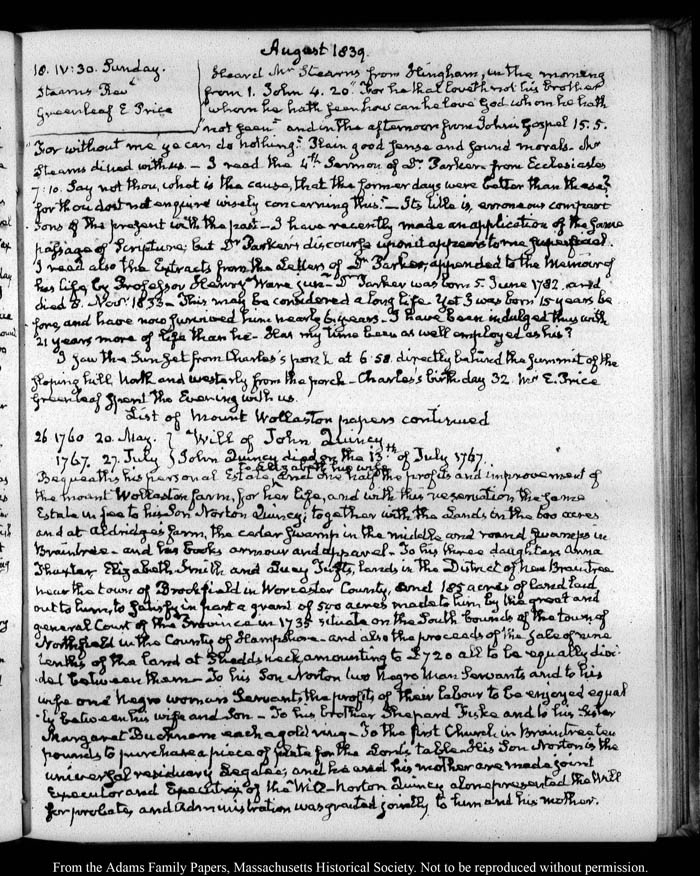 August 1839.
18. IV:30. Sunday.
Stearns Revd
Greenleaf E Price
Heard Mr Stearns from Hingham, in the morning
from 1. John 4. 20. "For he that loveth not his brother
whom he hath seen how can he love God whom he hath
not seen" and in the afternoon from John's Gospel 15. 5.
"For without me ye can do nothing." Plain good sense and sound morals. Mr
Stearns dined with us. – I read the 4th Sermon of Dr Parker from Ecclesiastes
7:10. Say not thou, what is the cause, that the former days were better than these?
for thou dost not enquire wisely concerning this." – Its title is, erroneous compari
sons of the present with the past – I have recently made an application of the same
passage of Scripture; but Dr Parker's discourse upon it appears to me superficial.
I read also the Extracts from the Letters of Dr Parker, appended to the Memoir of
his life by Professor Henry Ware junr – Dr Parker was born 5. June 1782. and
died 8. Novr 1833 – This may be considered a long life. Yet I was born 15 years be
fore, and have now survived him nearly 6 years. I have been indulged thus with
21 years more of life than he – Has my time been as well employed as his?
I saw the Sun set from Charles's porch at 6:58. directly behind the summit of the
sloping hill, North and westerly from the porch – Charles's birth day 32. Mr E. Price
Greenleaf spent the Evening with us.
List of Mount Wollaston papers continued
26 1760 20. May. } Will of John Quincy
1767. 27. July } John Quincy died on the 13th of July 1767.
to Elizabeth his wife
Bequeaths his personal Estate, and one half the profits and improvement of
the mount Wollaston farm, for her life, and with this reservation the same
Estate in fee to his Son Norton Quincy; together with the Lands in the 600 acres
and at Aldridge's farm, the cedar swamp in the middle and round swamps in
Braintree – and his books armour and apparel – To his three daughters Anna
Thaxter, Elizabeth Smith and Lucy Tufts, lands in the District of New Braintree
near the town of Brookfield in Worcester County, and 185 acres of land laid
out to him, to satisfy in part a grant of 500 acres made to him by the great and
general Court of the Province in 1735 situate on the South bounds of the town of
Northfield in the County of Hampshire – and also the proceeds of the sale of nine
tenths of the land at Shedds neck amounting to £720 all to be equally divi
ded between them – To his Son Norton two Negro Man Servants and to his
wife one Negro woman Servant, the profits of their labour to be enjoyed equal
ly between his wife and Son – To his brother Shepard Fiske and to his Sister
Margaret Bucknam each a gold ring – To the first Church in Braintree ten
pounds to purchase a piece of plate for the Lord's table – His Son Norton is the
universal residuary Legatee; and he and his mother are made joint
Executor and Executrix of the Will – Norton Quincy alone presented the Will
for probate, and Administration was granted jointly to him and his mother.
From the Adams Family Papers, Massachusetts Historical Society. Not to be reproduced without permission.